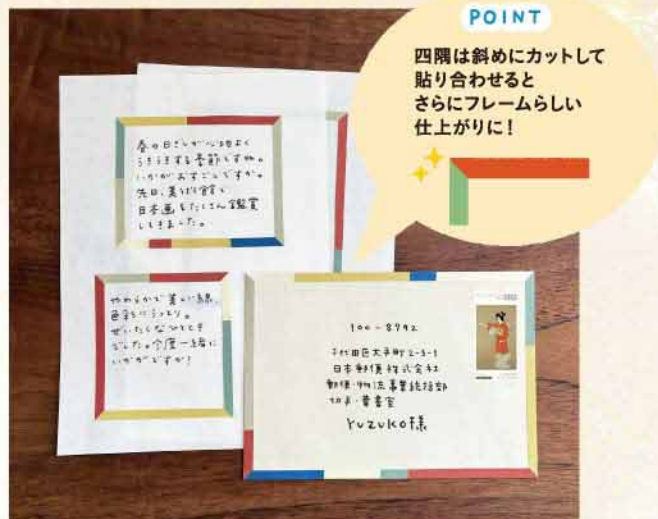 POINT
四隅は斜めにカットして
貼り合わせると
さらにフレームらしい
仕上がりに！
春の日ざしが心地よく
うきうきする季節ですね。
いかがおすごしですか。
先日、美術館で
日本画をたくさん鑑賞
してきました。
やわらかで美しい線、
色彩にうっとり。
ぜいたくなひととき
でした。今度一緒に
いかがですか？
100-8792
千代田区大手町2-3-1
日本郵便株式会社
郵便・物流事業統括部
切手・葉書室
Yuzuko様